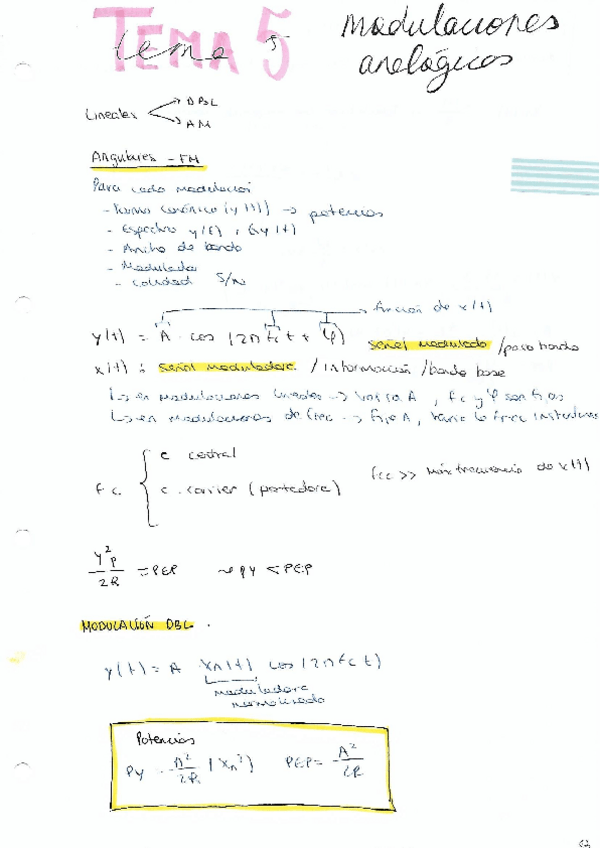 TEMA 5
Tema 5
modulaciones
analógicas
Lineales → DBL
→ AM
Angulares - FM
Para cada modulación
- Forma canónica (y(t)) → potencias
- Espectro y(f), Gy(f)
- Ancho de banda
- Modulador
- Calidad S/N
Función de x(t)
y(t) = A cos (2π fc t + φ) señal modulada / paso banda
x(t) : señal moduladora / información / banda base
↳ en modulaciones lineales → varía A, fc y φ son fijas
↳ en modulaciones de frec → fijo A, varía la frec instantánea
fc { c central
c. carrier (portadora)
fc >> máx frecuencia de x(t)
Y²p / 2R = PEP → Py < PEP
MODULACIÓN DBL.
y(t) = A xn(t) cos (2π fc t)
moduladora
normalizada
Potencias
Py = A²/2R (xn²) PEP = A²/2R